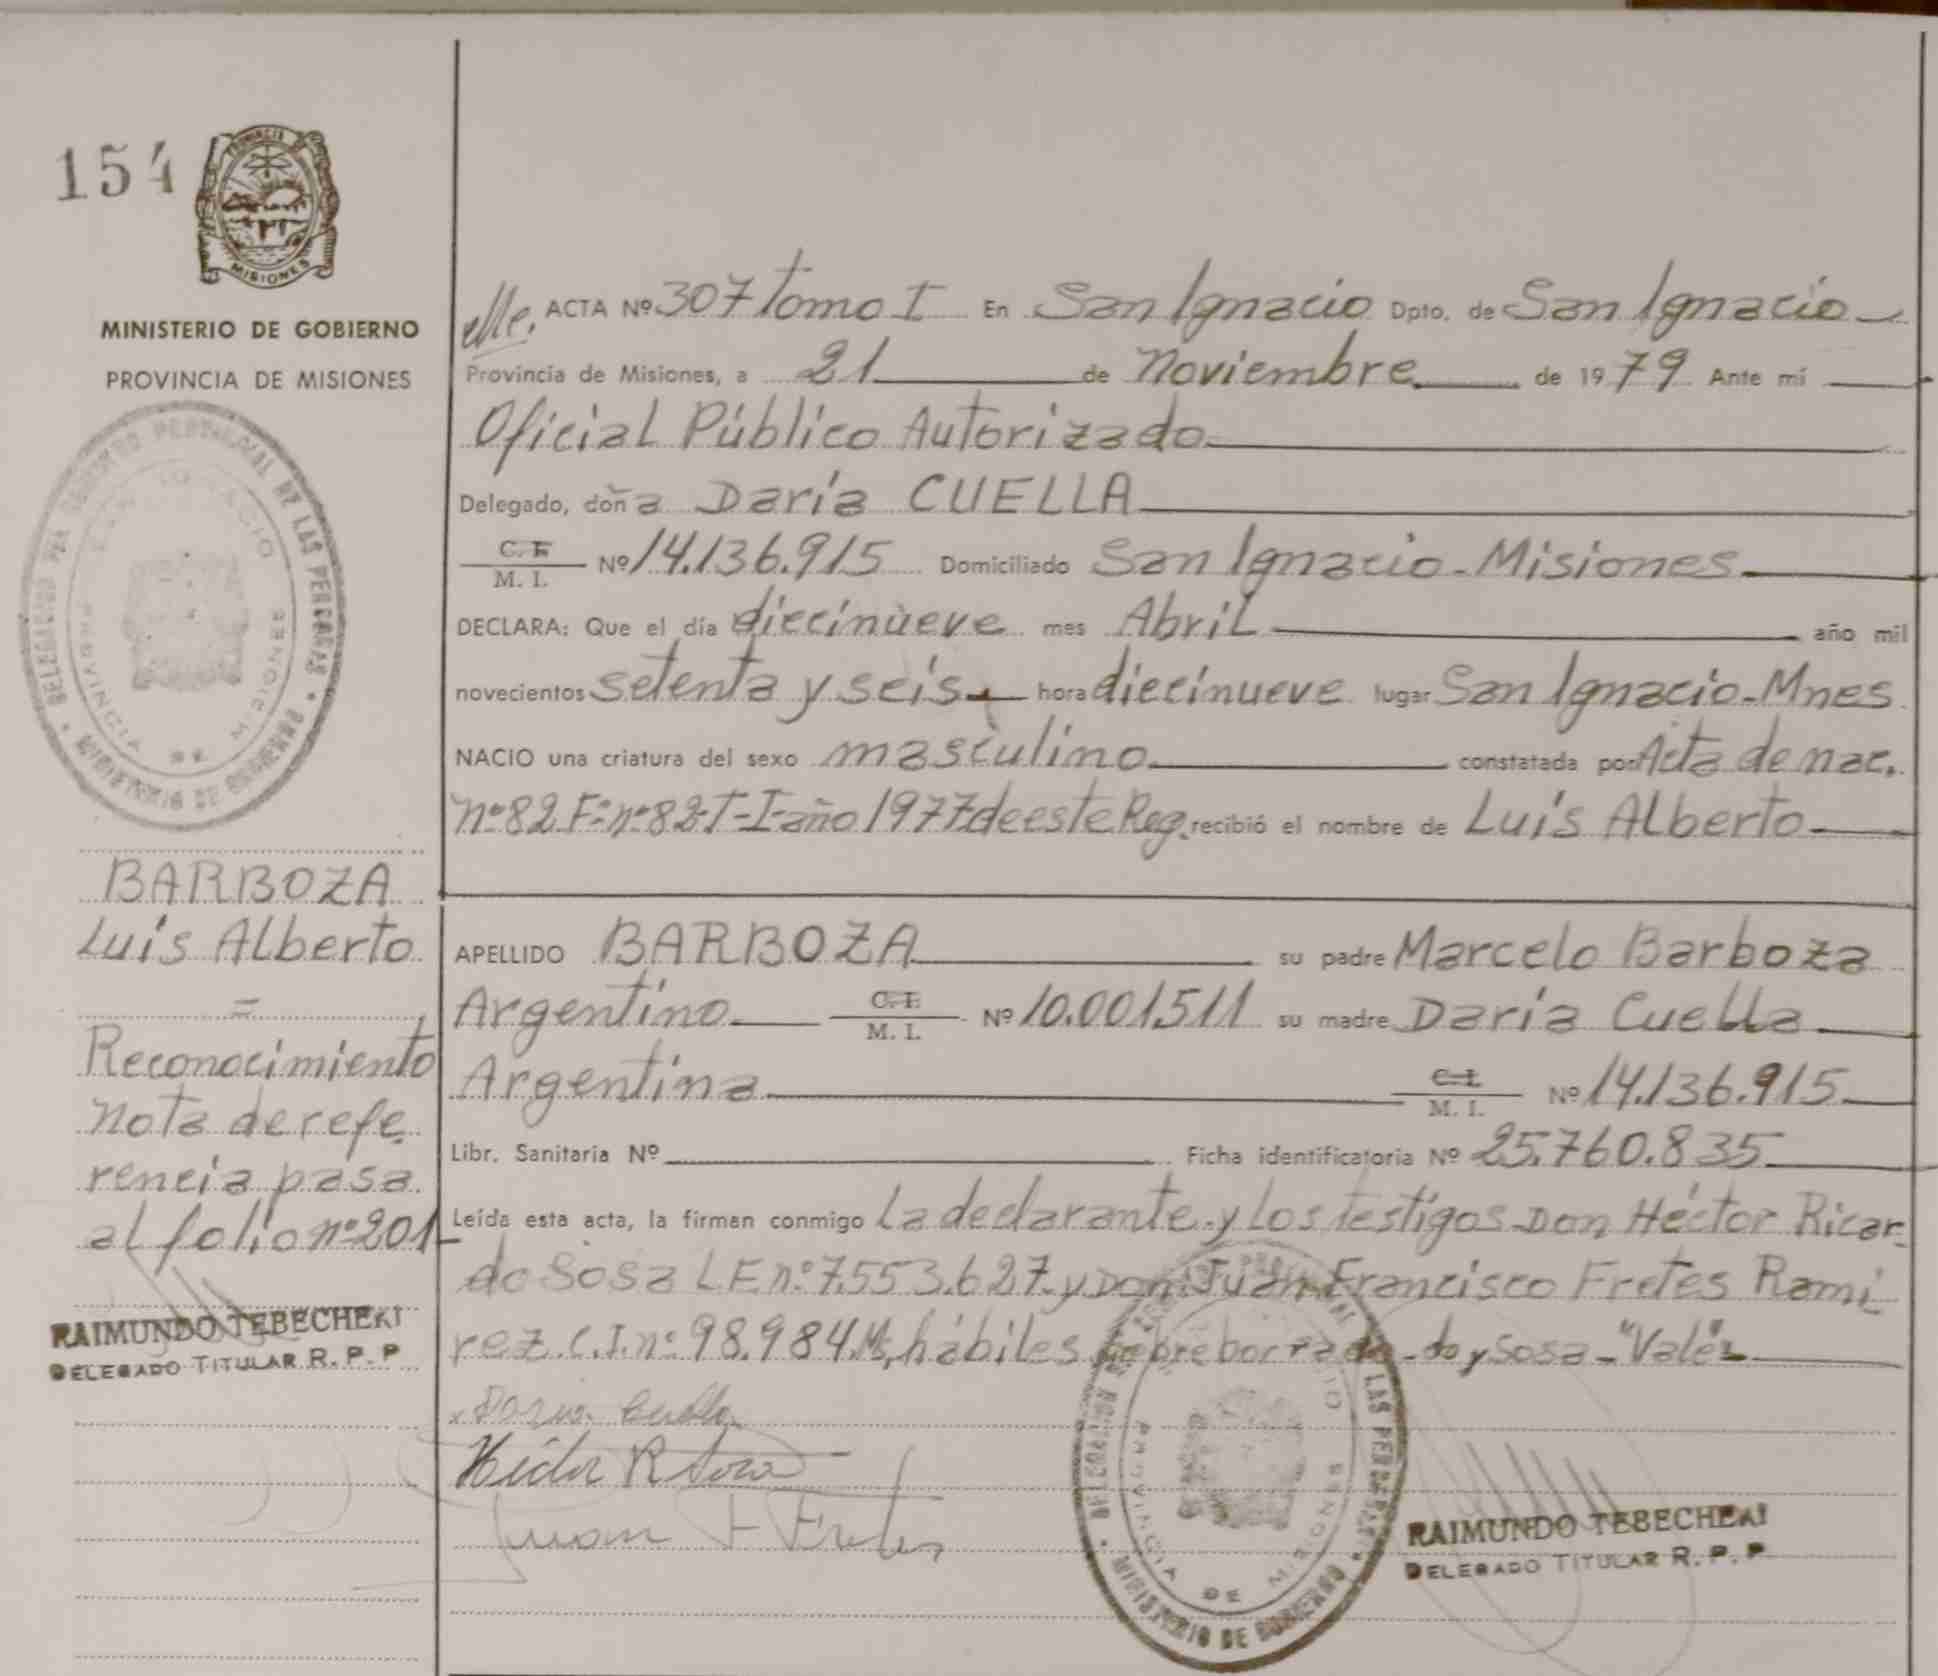 154
PROVINCIA DE
MISIONES
MINISTERIO DE GOBIERNO
PROVINCIA DE MISIONES
DELEGACION DEL REGISTRO PROVINCIAL DE LAS PERSONAS
SAN IGNACIO
PROVINCIA DE MISIONES
MINISTERIO DE GOBIERNO
BARBOZA
Luis Alberto
=
Reconocimiento
Nota de refe
rencia pasa
al folio nº 201
RAIMUNDO TEBECHERI
DELEGADO TITULAR R. P. P
ACTA Nº 307 Tomo I En San Ignacio Dpto. de San Ignacio
Provincia de Misiones, a 21 de Noviembre de 1979 Ante mí
Oficial Público Autorizado
Delegado, doña Daría CUELLA
C. I. M. I. Nº 14.136.915 Domiciliado San Ignacio - Misiones
DECLARA: Que el día diecinueve mes Abril año mil
novecientos setenta y seis hora diecinueve lugar San Ignacio - Mnes
NACIO una criatura del sexo masculino constatada por Acta de nac.
nº 82 Fº nº 82-T-I-año 1977 de este Reg. recibió el nombre de Luis Alberto
APELLIDO BARBOZA su padre Marcelo Barboza
Argentino C. I. M. I. Nº 10.001.511 su madre Daría Cuella
Argentina C. I. M. I. Nº 14.136.915
Libr. Sanitaria Nº Ficha identificatoria Nº 25.760.835
Leída esta acta, la firman conmigo La declarante y los testigos Don Héctor Ricar
do Sosa LE nº 7.553.627 y Don Juan Francisco Fretes Rami
rez C.I. nº 98.984 Ms, hábiles sobre borrado - do y Sosa - "Vale"
Daria Cuella
Héctor R Sosa
Juan F Fretes
PROVINCIA DE MISIONES
MINISTERIO DE GOBIERNO
RAIMUNDO TEBECHERI
DELEGADO TITULAR R. P. P